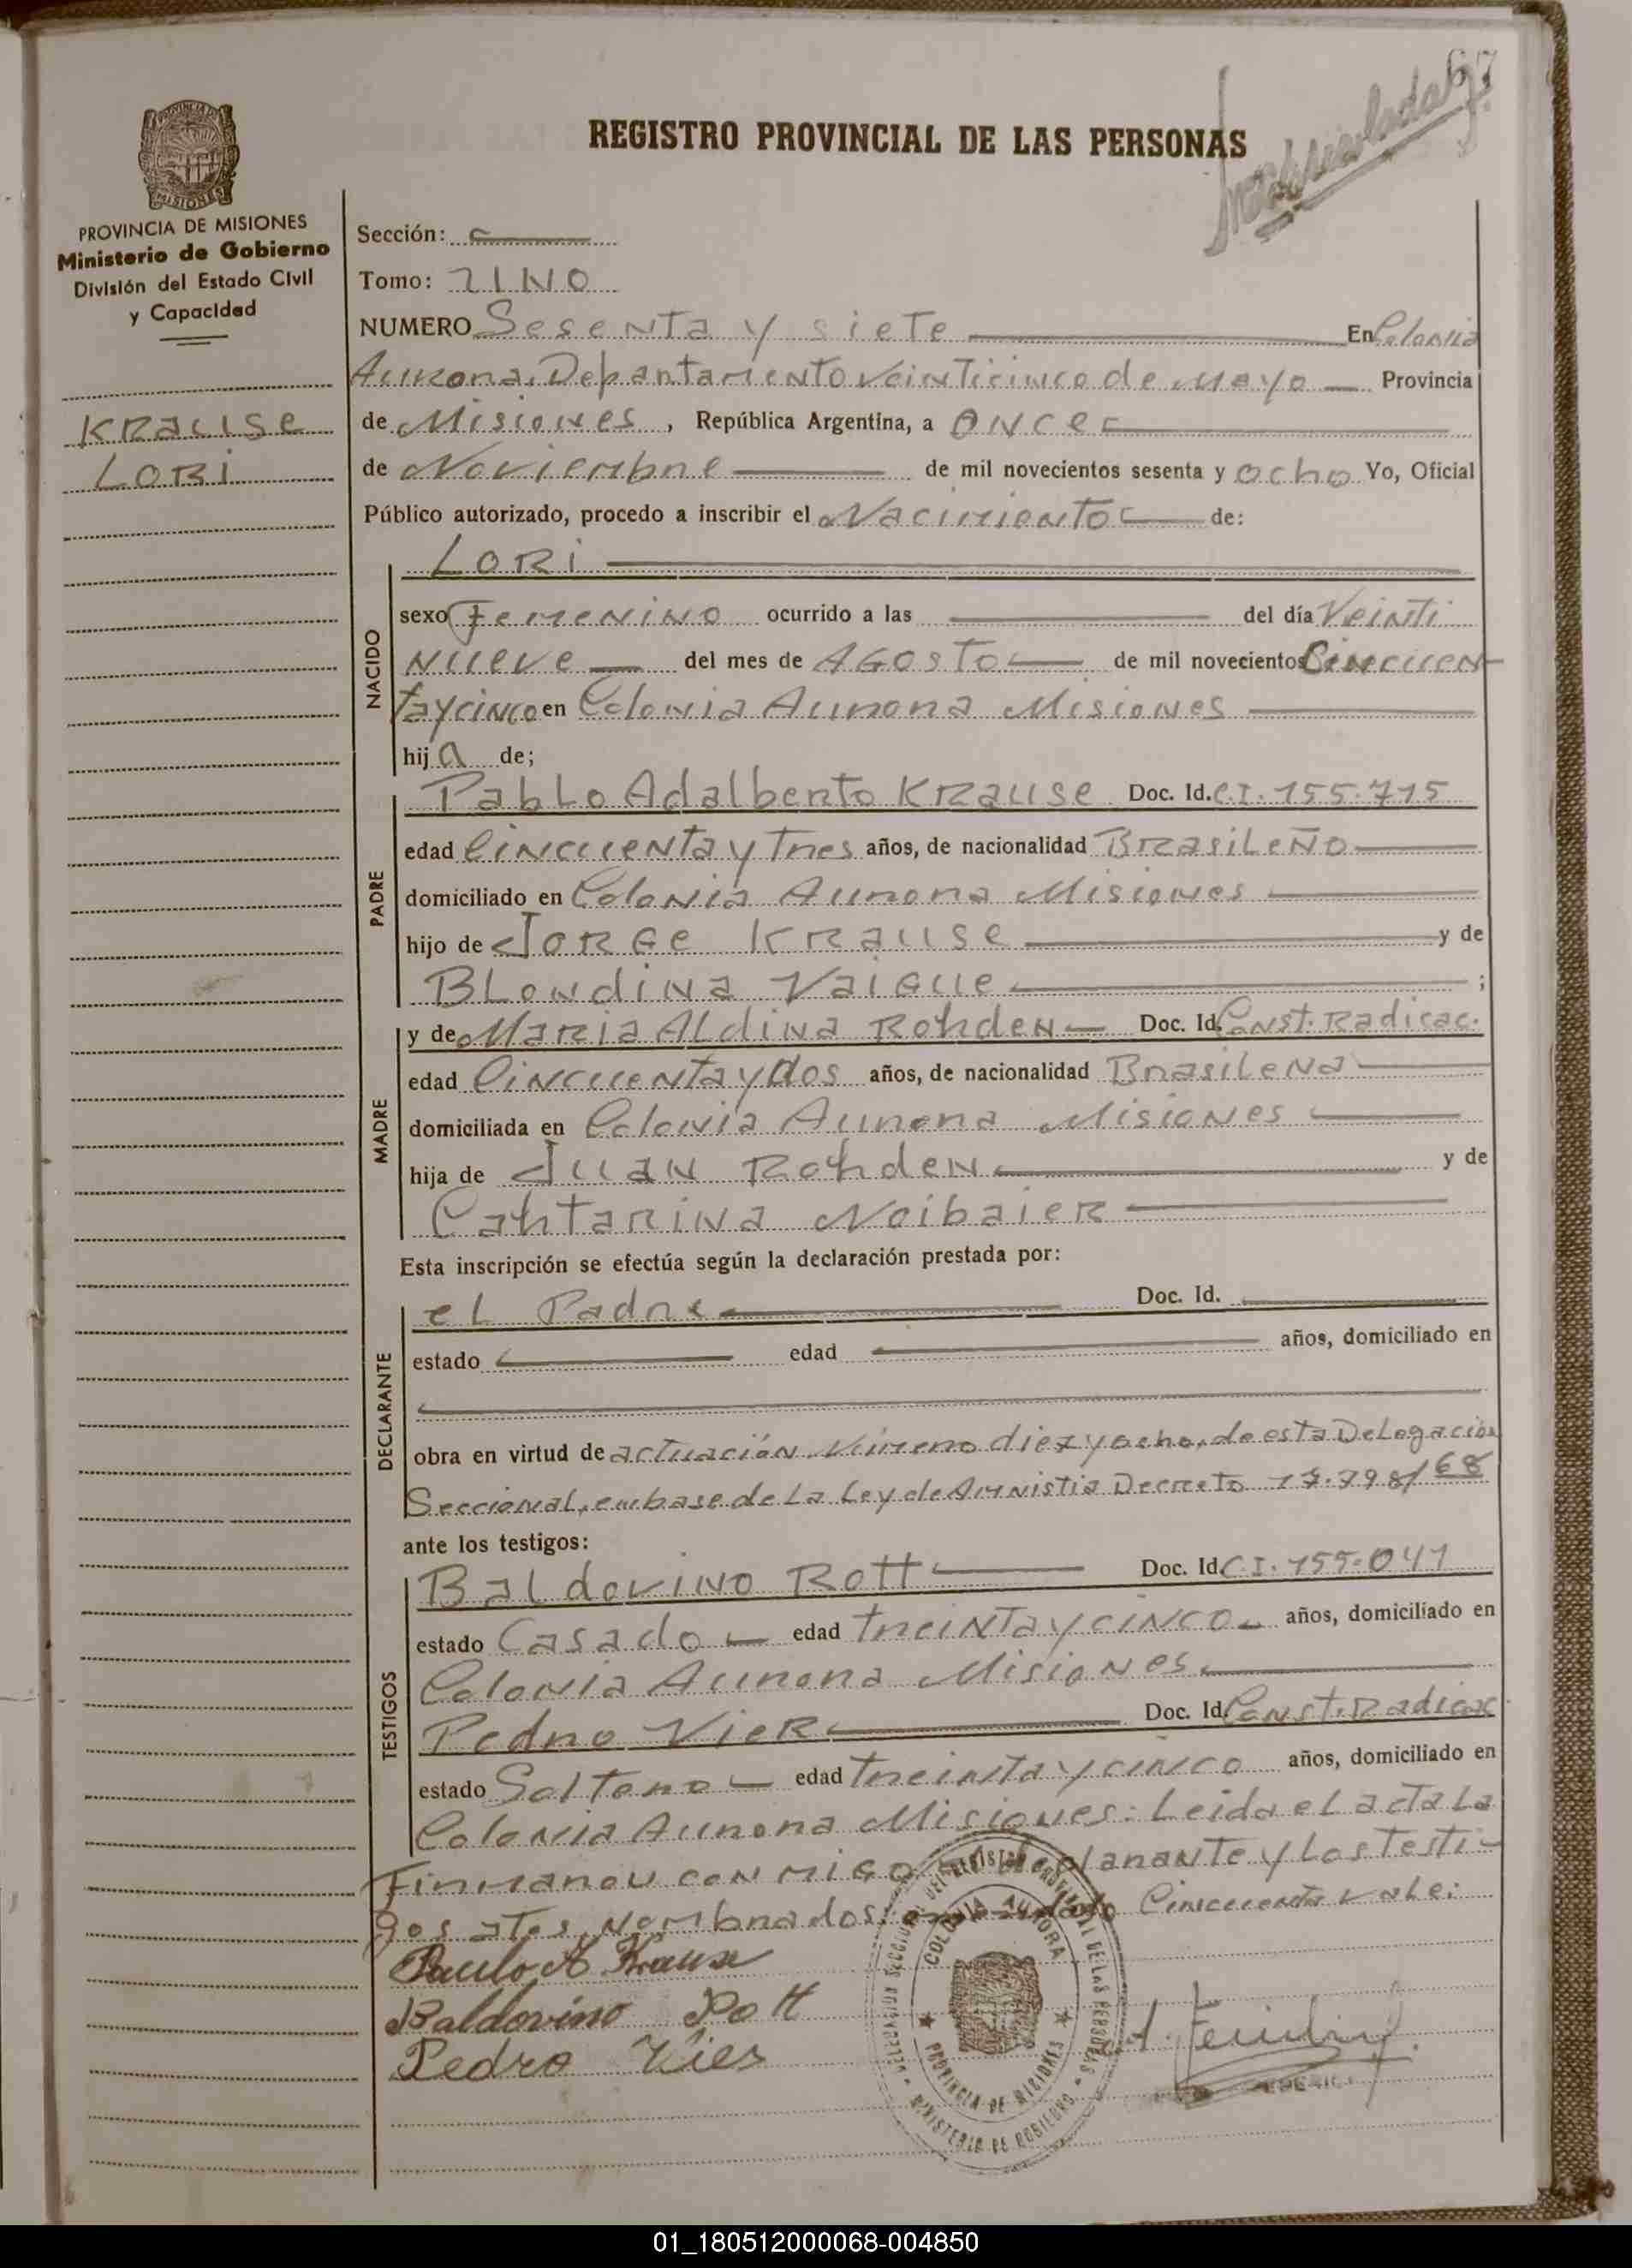 67
REGISTRO PROVINCIAL DE LAS PERSONAS
PROVINCIA DE MISIONES
Ministerio de Gobierno
División del Estado Civil
y Capacidad
KRAUSE
LORI
Sección:
Tomo: UNO
NUMERO Sesenta y siete En Colonia
Aurora, Departamento Veinticinco de Mayo Provincia
de Misiones, República Argentina, a ONCE
de Noviembre de mil novecientos sesenta y ocho Yo, Oficial
Público autorizado, procedo a inscribir el Nacimiento de:
NACIDO
LORI
sexo Femenino ocurrido a las del día Veinti
nueve del mes de AGOSTO de mil novecientos Cincuen-
ta y cinco en Colonia Aurora Misiones
hij a de;
PADRE
Pablo Adalberto Krause Doc. Id. C.I. 155.715
edad Cincuenta y Tres años, de nacionalidad Brasileño
domiciliado en Colonia Aurora Misiones
hijo de Jorge Krause y de
Blondina Vaigue ;
MADRE
y de Maria Aldina Rohden Doc. Id. Const. Radicac.
edad Cincuenta y dos años, de nacionalidad Brasilena
domiciliada en Colonia Aurora Misiones
hija de Juan Rohden y de
Cahtarina Noibaier
Esta inscripción se efectúa según la declaración prestada por:
DECLARANTE
el Padre Doc. Id.
estado edad años, domiciliado en
obra en virtud de actuación Número diez y ocho, de esta Delegación
Seccional, en base de la Ley de Amnistia Decreto 17.798/68
ante los testigos:
TESTIGOS
Baldovino Rott Doc. Id. C.I. 155.041
estado Casado edad treinta y cinco años, domiciliado en
Colonia Aurora Misiones
Pedro Vier Doc. Id. Const. Radicac
estado Soltero edad treinta y cinco años, domiciliado en
Colonia Aurora Misiones: Leida el acta La
Firmaron conmigo declarante y Los testi-
gos nombrados: Cincuenta vale:
Paulo A Krause
Baldovino Rott
Pedro Vier
COLONIA AURORA
PROVINCIA DE MISIONES
MINISTERIO DE GOBIERNO
01_180512000068-004850